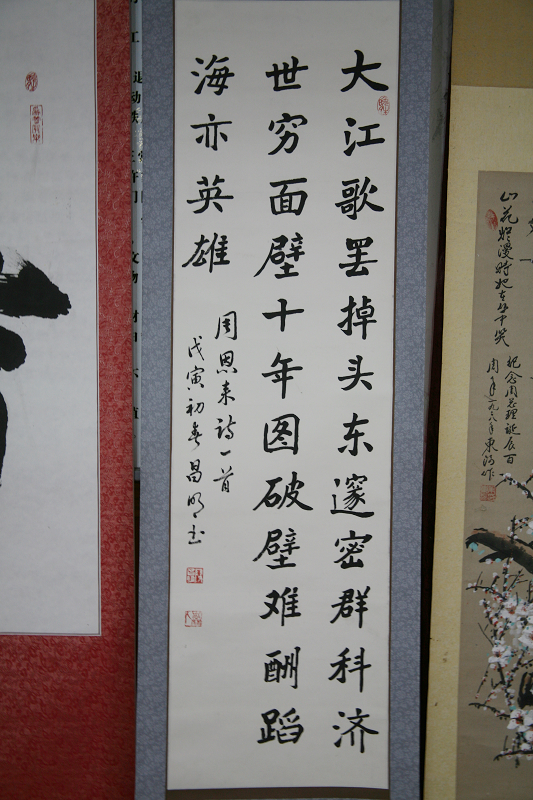 大江歌罢掉头东邃密群科济
世穷面壁十年图破壁难酬蹈
海亦英雄
周恩来诗一首
戊寅初春昌明书
山花烂漫时她在丛中笑
纪念周总理诞辰百
周年一九九八年东海作